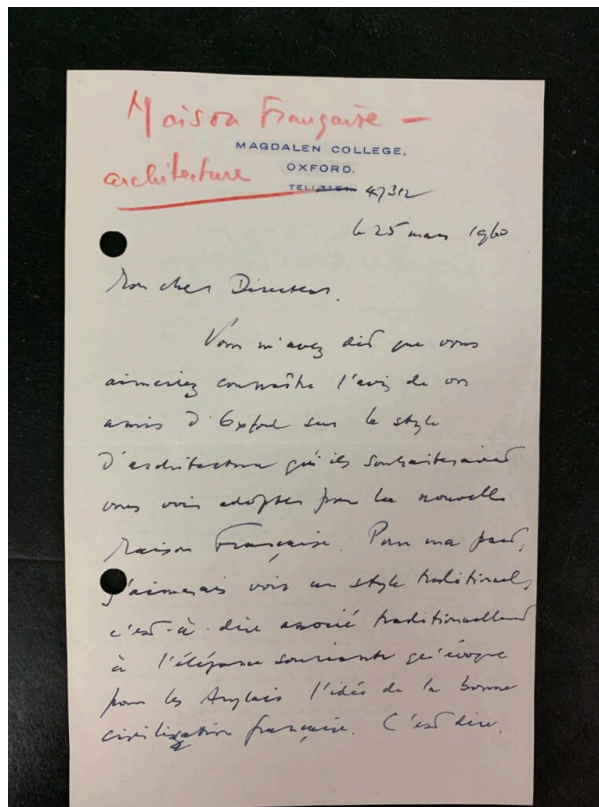 Maison Française —
MAGDALEN COLLEGE,
architecture
OXFORD.
47312
le 25 mars 1960
Mon cher Directeur.
Vous m'avez dit que vous
aimeriez connaître l'avis de vos
amis d'Oxford sur le style
d'architecture qu'ils souhaiteraient
vous voir adopter pour la nouvelle
Maison Française. Pour ma part,
j'aimerais voir un style traditionnel,
c'est-à-dire associé traditionnellement
à l'élégance souriante qu'évoque
pour les Anglais l'idée de la bonne
civilisation française. C'est dire,